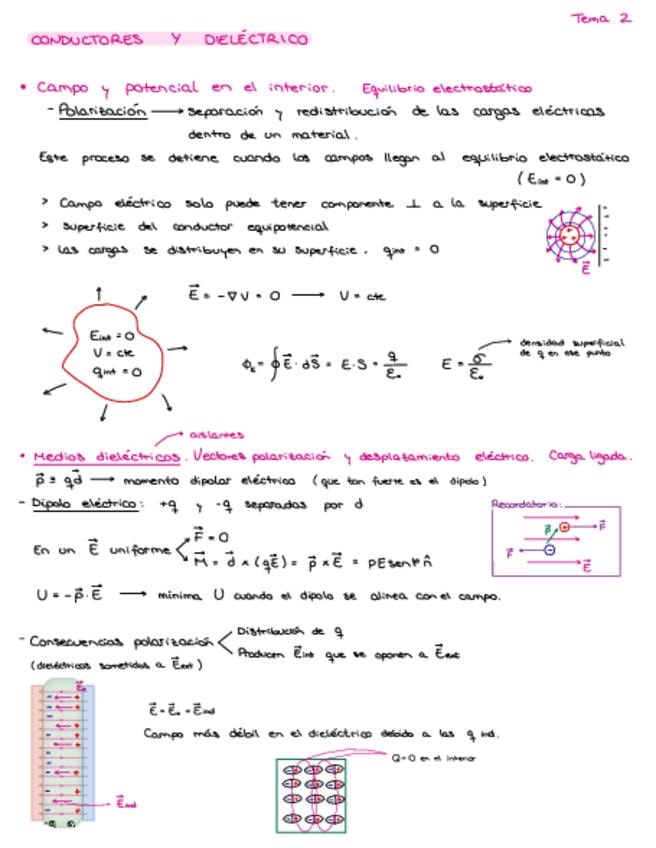 Tema 2
CONDUCTORES Y DIELÉCTRICO
• Campo y potencial en el interior. Equilibrio electrostático
- Polarización → separación y redistribución de las cargas eléctricas
dentro de un material.
Este proceso se detiene cuando los campos llegan al equilibrio electrostático
(E_int = 0)
> Campo eléctrico solo puede tener componente ⊥ a la superficie
> Superficie del conductor equipotencial
> Las cargas se distribuyen en su superficie. q_int = 0
E⃗
E⃗ = -∇V = 0 → V = cte
E_int = 0
V = cte
q_int = 0
Φ_E = ∮E⃗ · dS⃗ = E·S = q/ε₀ E = σ/ε₀
densidad superficial
de q en ese punto
aislantes
• Medios dieléctricos. Vectores polarización y desplazamiento eléctrico. Carga ligada.
p⃗ ≡ qd⃗ → momento dipolar eléctrico (que tan fuerte es el dipolo)
- Dipolo eléctrico: +q y -q separadas por d
Recordatorio:
p⃗ + F⃗
F⃗ - E⃗
En un E⃗ uniforme
F⃗ = 0
M⃗ = d⃗ × (qE⃗) = p⃗ × E⃗ = pEsenφ n̂
U = -p⃗ · E⃗ → mínima U cuando el dipolo se alinea con el campo.
- Consecuencias polarización
Distribución de q
Producen E⃗_int que se oponen a E⃗_ext
(dieléctricos sometidos a E⃗_ext)
E⃗ = E⃗₀ + E⃗_ind
Campo más débil en el dieléctrico debido a las q ind.
Q=0 en el interior
E⃗_ind